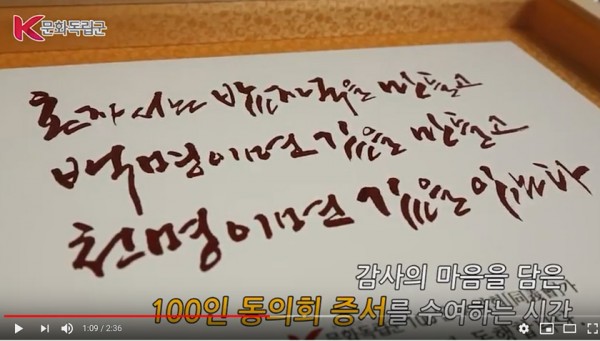 K 문화독립군
혼자서는 발자국을 만들고
백명이면 길을 만들고
천명이면 길을 잇는다
감사의 마음을 담은
100인 동의회 증서를 수여하는 시간
1:09 / 2:36